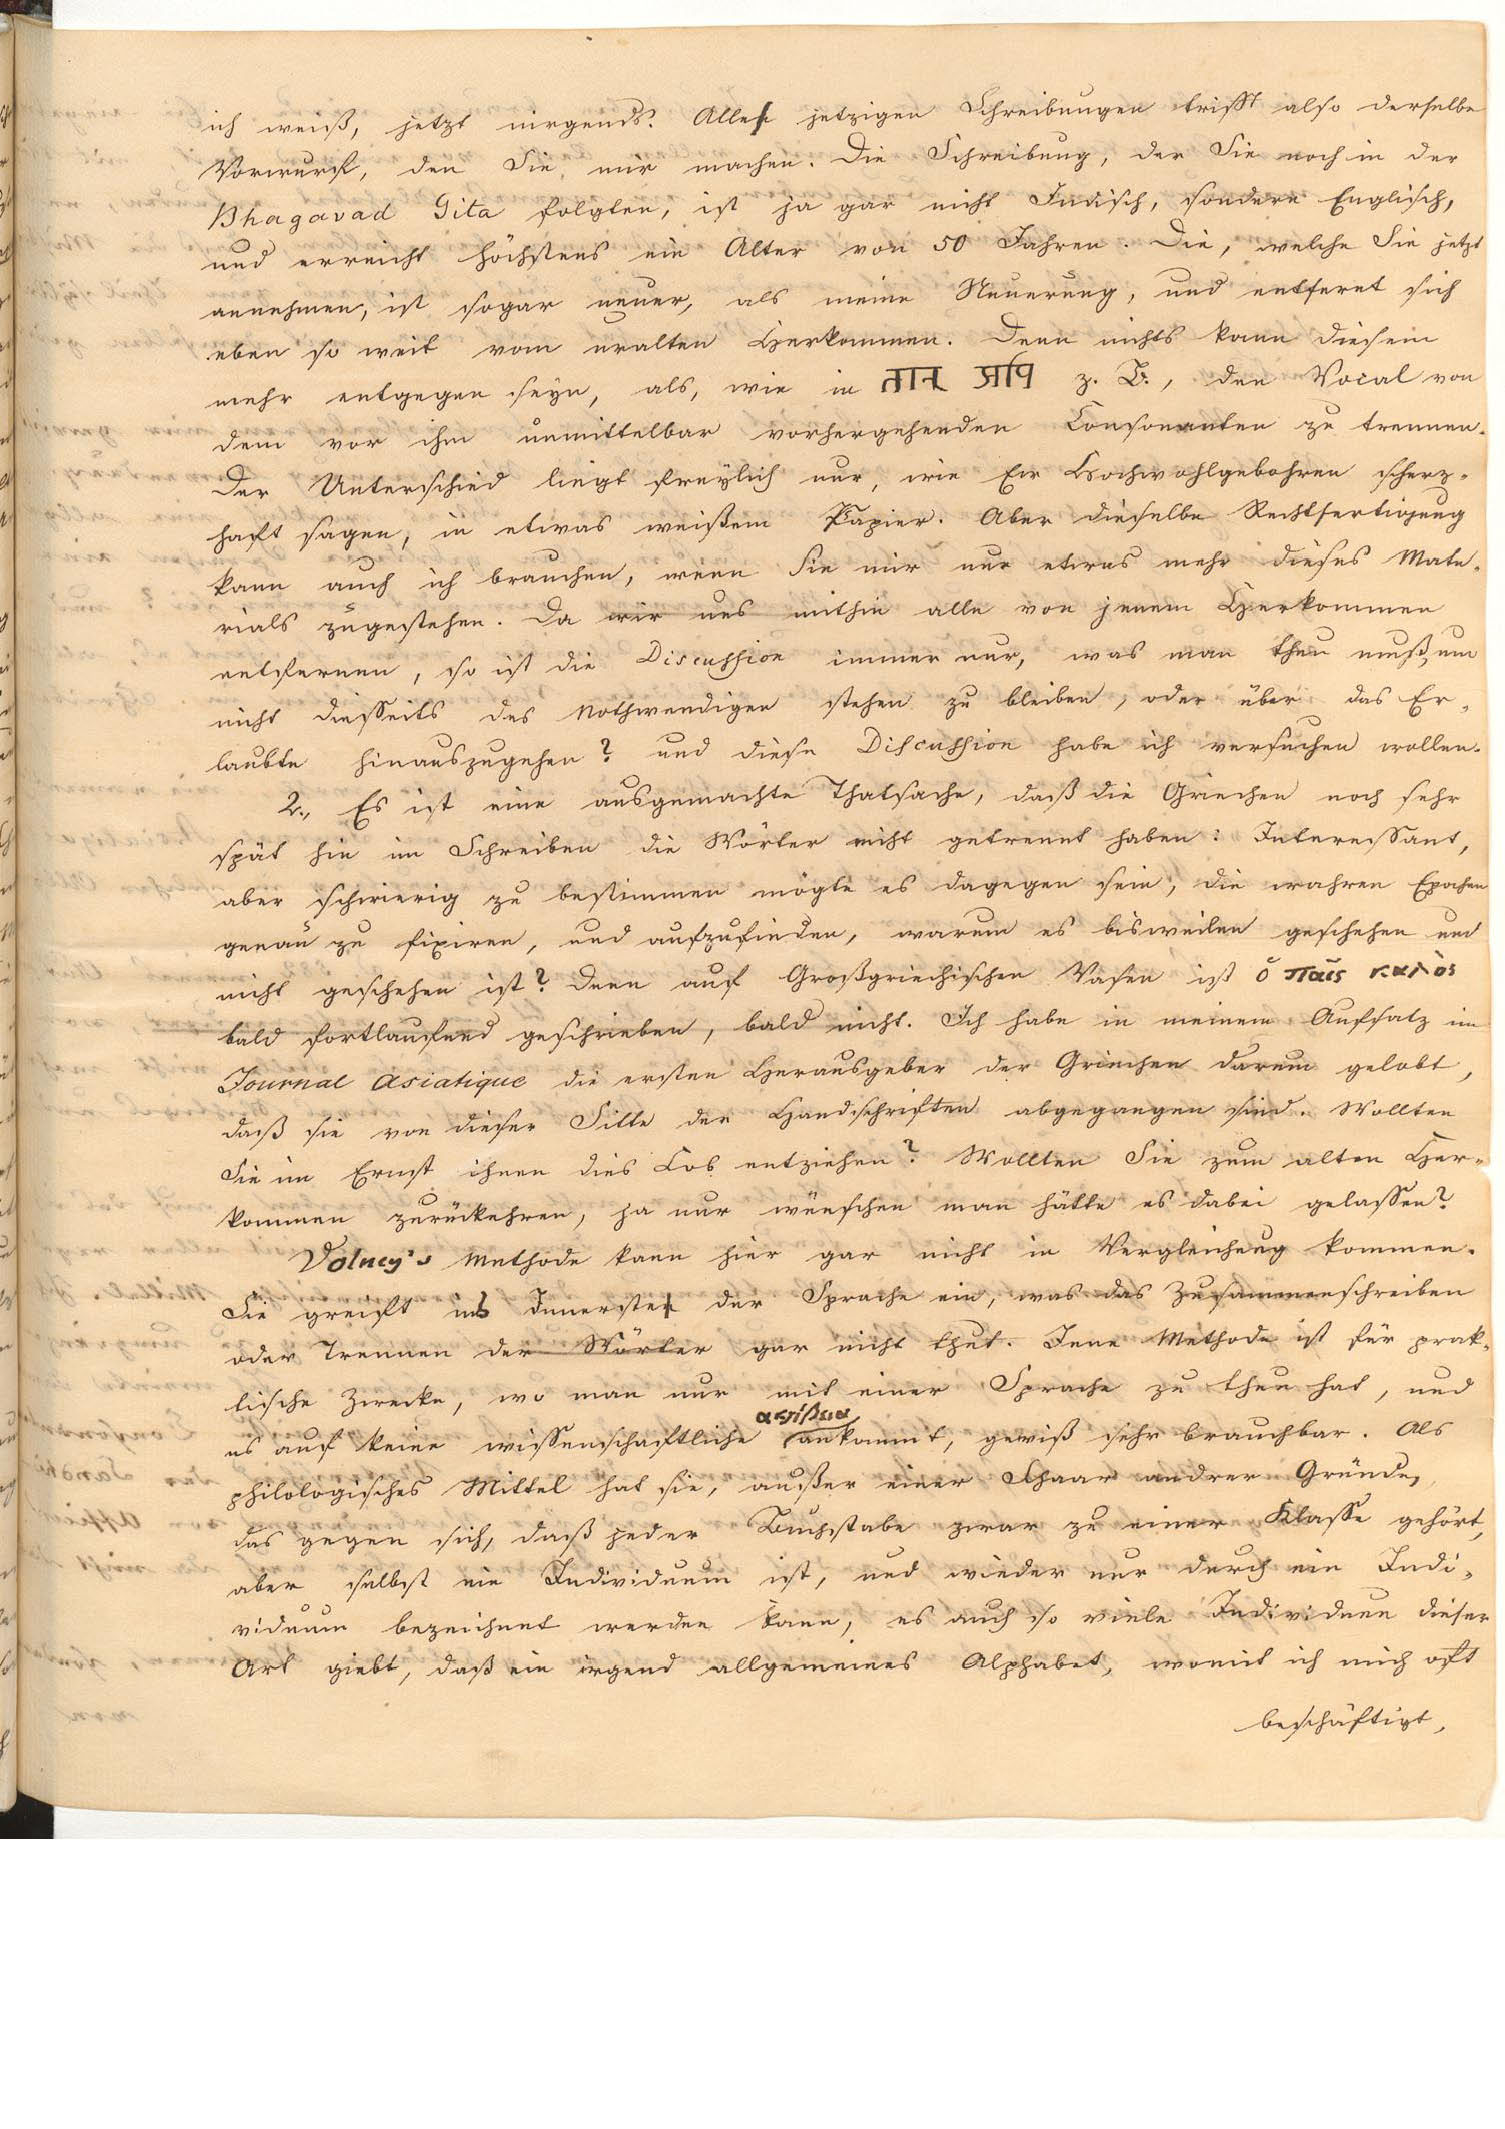 ich weiß, jetzt nirgends. Alle jetzigen Schreibungen trifft also derselbe
Vorwurf, den Sie mir machen. Die Schreibung, der Sie noch in der
Bhagavad Gita folgten, ist ja gar nicht Indisch, sondern Englisch,
und erreicht höchstens ein Alter von 50 Jahren. Die, welche Sie jetzt
annehmen, ist sogar neuer, als meine Neuerung, und entfernt sich
eben so weit vom uralten Herkommen. Denn nichts kann diesem
mehr entgegen seyn, als, wie in तान् अपि z. B., den Vocal von
dem vor ihm unmittelbar vorhergehenden Consonanten zu trennen.
Der Unterschied liegt freylich nur, wie Ew Hochwohlgebohren scherz-
haft sagen, in etwas weißem Papier. Aber dieselbe Rechtfertigung
kann auch ich brauchen, wenn Sie mir nur etwas mehr dieses Mate-
rials zugestehen. Da wir uns mithin alle von jenem Herkommen
entfernen, so ist die Discussion immer nur, was man thun muß, um
nicht diesseits des Nothwendigen stehen zu bleiben, oder über das Er-
laubte hinauszugehen? und diese Discussion habe ich versuchen wollen.
2., Es ist eine ausgemachte Thatsache, daß die Griechen noch sehr
spät hin im Schreiben die Wörter nicht getrennt haben: Interessant,
aber schwierig zu bestimmen mögte es dagegen sein, die wahren Epochen
genau zu fixiren, und aufzufinden, warum es bisweilen geschehen und
nicht geschehen ist? Denn auf Großgriechischen Vasen ist ὁ παῖς καλὸς
bald fortlaufend geschrieben, bald nicht. Ich habe in meinem Aufsatz im
Journal asiatique die ersten Herausgeber der Griechen darum gelobt,
daß sie von dieser Sitte der Handschriften abgegangen sind. Wollten
Sie im Ernst ihnen dies Lob entziehen? Wollten Sie zum alten Her-
kommen zurükehren, ja nur wünschen man hätte es dabei gelassen?
Volney's Methode kann hier gar nicht in Vergleichung kommen.
Sie greift ins Innerste der Sprache ein, was das Zusammenschreiben
oder Trennen der Wörter gar nicht thut. Jene Methode ist für prak-
tische Zwecke, wo man nur mit einer Sprache zu thun hat, und
es auf keine wissenschaftliche ἀκρίβεια ankommt, gewiß sehr brauchbar. Als
philologisches Mittel hat sie, außer einer Schaar andrer Gründe,
das gegen sich, daß jeder Buchstabe zwar zu einer Klasse gehört,
aber selbst ein Individuum ist, und wieder nur durch ein Indi-
viduum bezeichnet werden kann, es auch so viele Individuen dieser
Art giebt, daß ein irgend allgemeines Alphabet, womit ich mich oft
beschäftigt,